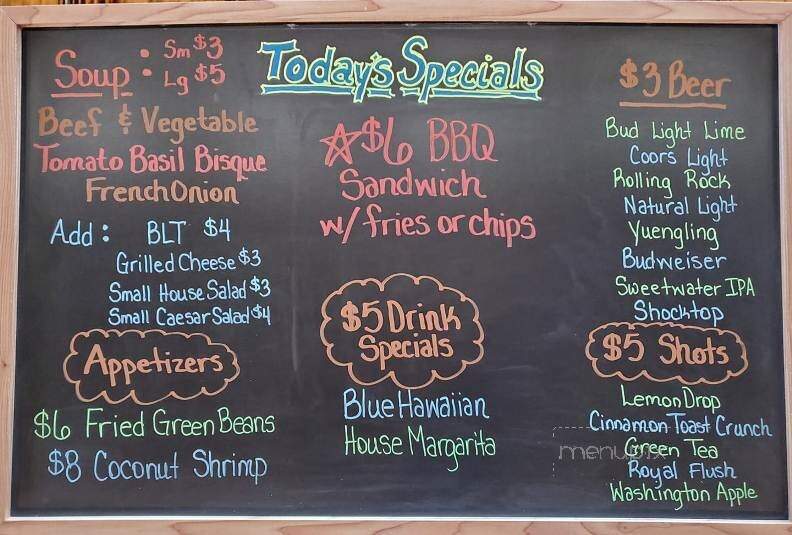 Today's Specials
Soup : Sm $3
Lg $5
Beef & Vegetable
Tomato Basil Bisque
French Onion
Add : BLT $4
Grilled Cheese $3
Small House Salad $3
Small Caesar Salad $4
Appetizers
$6 Fried Green Beans
$8 Coconut Shrimp
$6 BBQ
Sandwich
w/ fries or chips
$5 Drink
Specials
Blue Hawaiian
House Margarita
$3 Beer
Bud Light Lime
Coors Light
Rolling Rock
Natural Light
Yuengling
Budweiser
Sweetwater IPA
Shocktop
$5 Shots
Lemon Drop
Cinnamon Toast Crunch
Green Tea
Royal Flush
Washington Apple
menupix